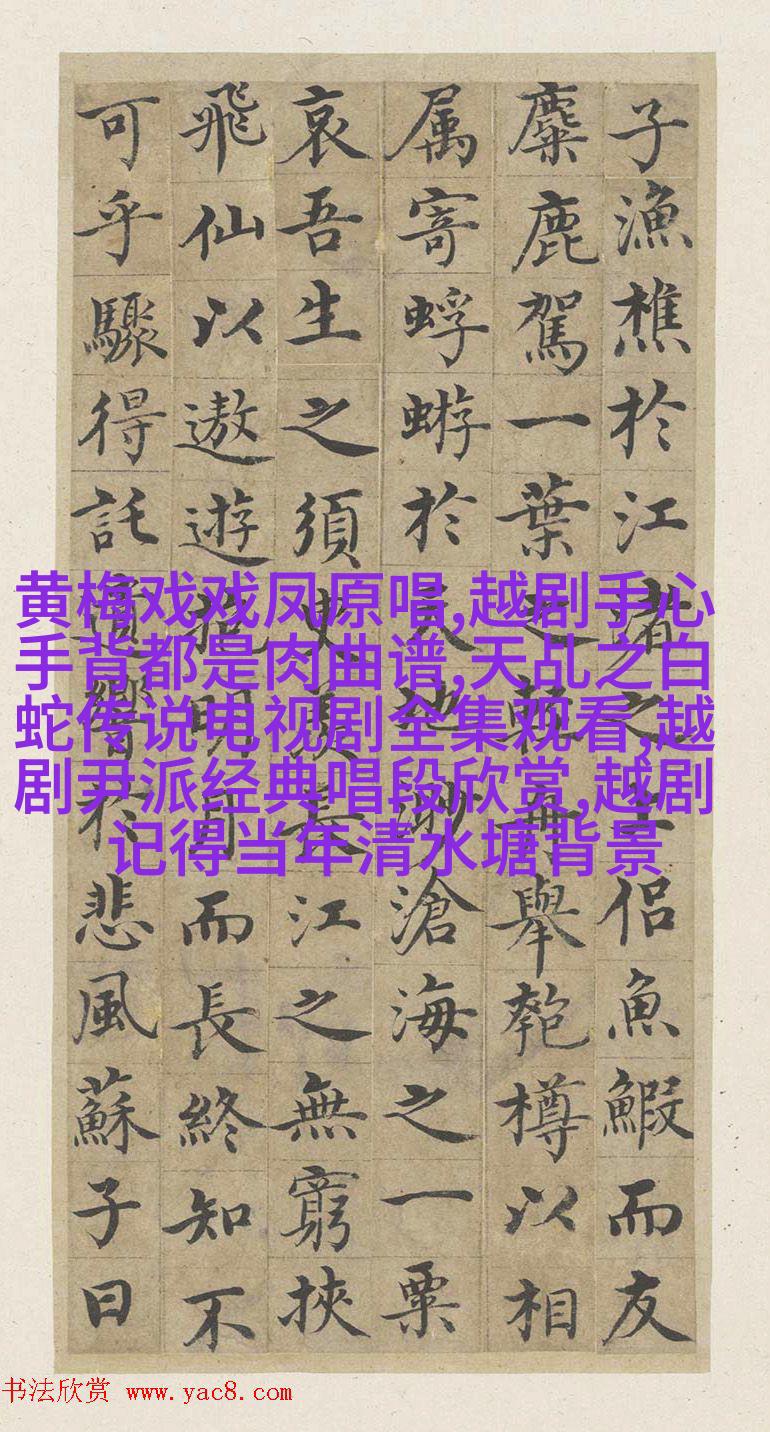 子漁樵於江渚之上侶魚鰕而友
麋鹿駕一葉之舟舉匏樽以相
属寄蜉蝣於天地渺滄海之一粟
哀吾生之須臾羨長江之無窮挾
飛仙以遨遊抱明月而長終知不
可乎驟得託遺響於悲風蘇子曰
黄梅戏戏凤原唱,越剧手心
手背都是肉曲谱,天乩之白
蛇传说电视剧全集观看,越
剧尹派经典唱段欣赏,越剧
记得当年清水塘背景
书法欣赏 www.yac8.com